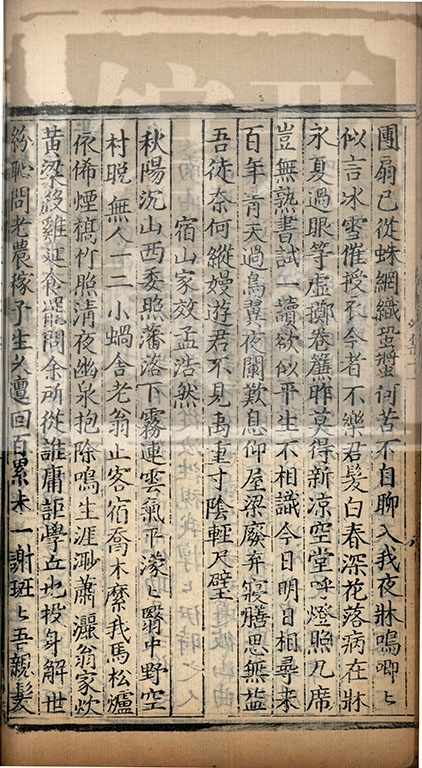 團扇已從蛛網織蛩螿何苦不自聊入我夜牀鳴唧〻
似言冰雪催授衣今者不樂君髮白春深花落病在牀
永夏過眼等虛擲卷簾昨莫得新涼空堂呼燈照几席
豈無熟書試一讀欲似平生不相識今日明日相尋來
百年青天過鳥翼夜闌歎息仰屋梁廢弃寢膳思無益
吾徒奈何縱嫚遊君不見禹重寸陰輕尺璧
宿山家效孟浩然
秋陽沉山西委照藩落下霧連雲氣平濛〻翳中野空
村晚無人一二小蝸舍老翁止客宿喬木縻我馬松爐
依俙煙槁竹照清夜幽泉抱除鳴生涯渺蕭灑翁家炊
黃粱殺雞延食罷問余所從誰庸詎學丘也投身解世
紛恥問老農稼予生久邅回百累未一謝斑〻吾親髮